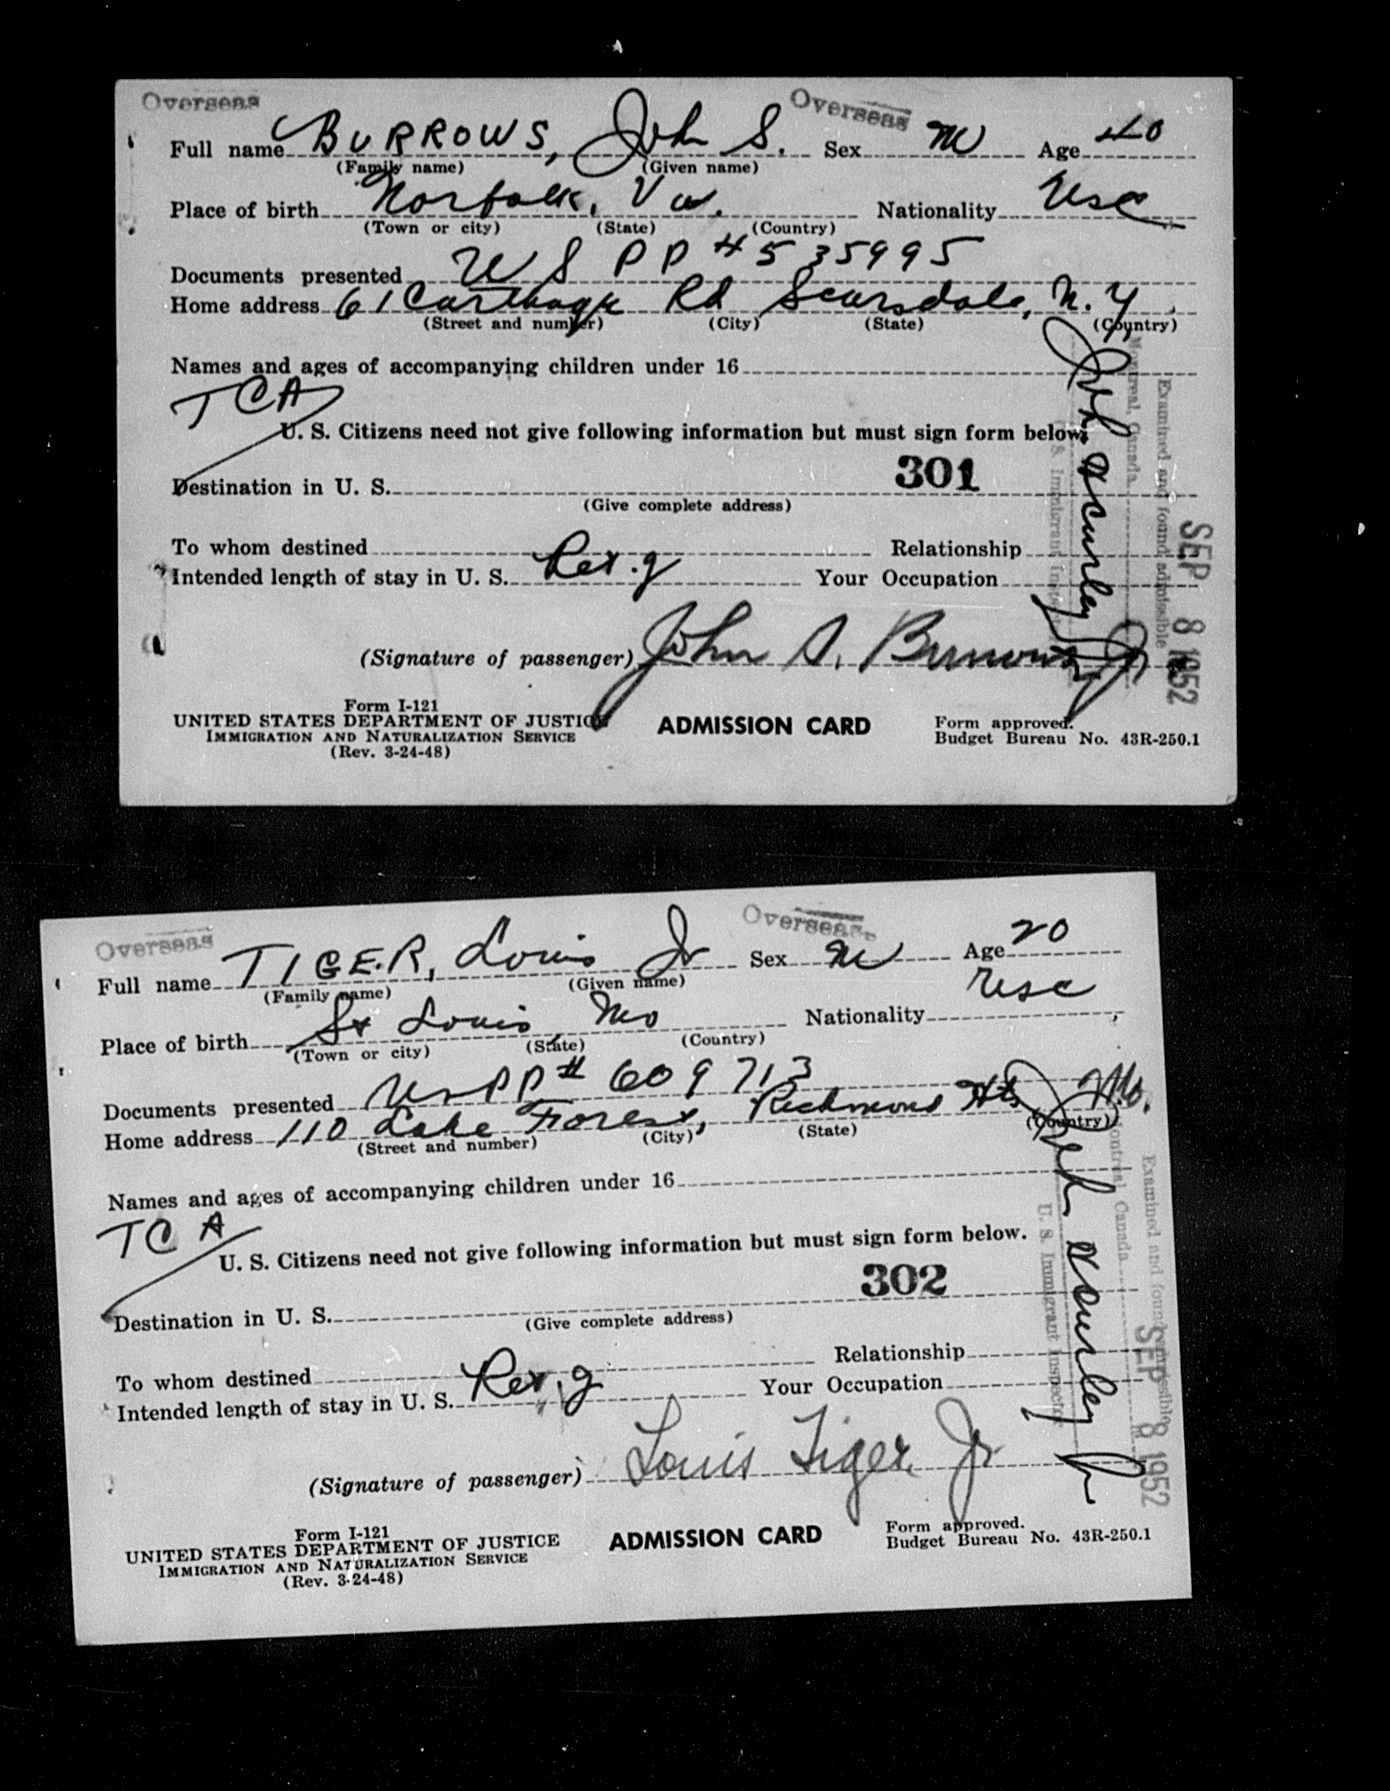 Overseas Overseas
Full name BURROWS, John S. Sex M Age 40
(Family name) (Given name)
Place of birth Norfolk, Va. Nationality USC
(Town or city) (State) (Country)
Documents presented US PP # 535995
Home address 61 Carthage Rd Scarsdale, N.Y.
(Street and number) (City) (State) (Country)
Names and ages of accompanying children under 16
TCA
U. S. Citizens need not give following information but must sign form below.
301
Destination in U. S.
(Give complete address)
To whom destined Relationship
Intended length of stay in U. S. Your Occupation
(Signature of passenger) John S. Burrows
Examined and found admissible
Montreal, Canada.
U. S. Immigrant Inspector
SEP 8 1952
Form I-121
UNITED STATES DEPARTMENT OF JUSTICE ADMISSION CARD Form approved.
IMMIGRATION AND NATURALIZATION SERVICE Budget Bureau No. 43R-250.1
(Rev. 3-24-48)
Overseas Overseas
Full name TIGER, Louis Jr Sex M Age 20
(Family name) (Given name)
Place of birth St Louis Mo Nationality USC
(Town or city) (State) (Country)
Documents presented US PP # 609713
Home address 110 Lake Forest, Richmond Hts, Mo.
(Street and number) (City) (State) (Country)
Names and ages of accompanying children under 16
TCA
U. S. Citizens need not give following information but must sign form below.
302
Destination in U. S.
(Give complete address)
To whom destined Relationship
Intended length of stay in U. S. Your Occupation
(Signature of passenger) Louis Tiger Jr
Examined and found admissible
Montreal, Canada.
U. S. Immigrant Inspector
SEP 8 1952
Form I-121
UNITED STATES DEPARTMENT OF JUSTICE ADMISSION CARD Form approved.
IMMIGRATION AND NATURALIZATION SERVICE Budget Bureau No. 43R-250.1
(Rev. 3-24-48)